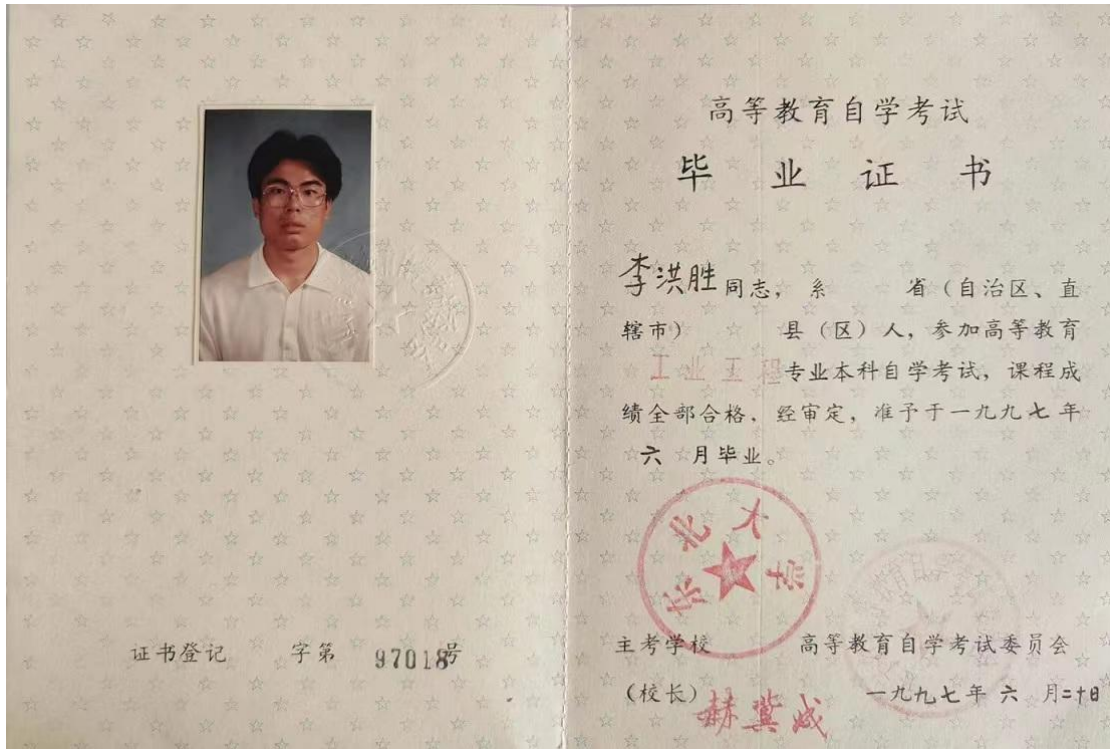 高等教育自学考试
毕业证书
李洪胜同志，系 省（自治区、直
辖市） 县（区）人，参加高等教育
工业工程专业本科自学考试，课程成
绩全部合格、经审定，准予于一九九七年
六月毕业。
东北大学
主考学校 高等教育自学考试委员会
（校长）赫冀成 一九九七年六月二十日
证书登记 字第 97018号